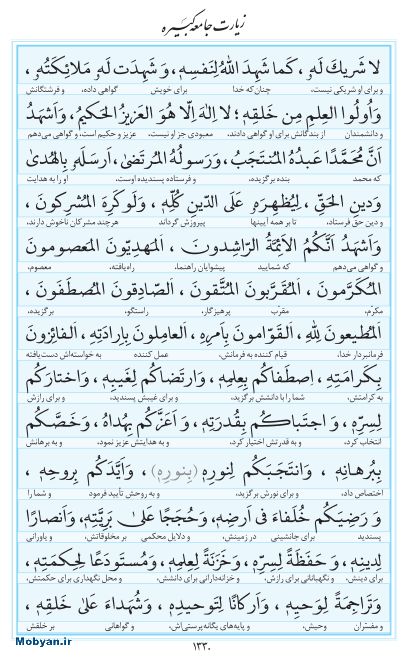 زیارت جامعه کبیره
لا شَريكَ لَهُ ، كَما شَهِدَ اللهُ لِنَفْسِهِ، وَ شَهِدَت لَهُ مَلائِكَتُهُ ،
و برای او شریکی نیست، چنان‌که خدا برای خویش گواهی داده، و فرشتگانش
وَ اُولُوا العِلمِ مِن خَلقِهِ ؛ لا اِلهَ اِلّا هُوَ العَزيزُ الحَكيمُ، وَ اَشهَدُ
و دانشمندان از بندگانش برای او گواهی دادند، معبودی جز او نیست، عزیز و حکیم است، و گواهی می‌دهم
اَنَّ مُحَمَّدًا عَبدُهُ المُنتَجَبُ، وَ رَسولُهُ المُرتَضىٰ، اَرسَلَهُ بِالهُدىٰ
که محمد بنده برگزیده، و فرستاده پسندیده اوست، او را به هدایت
وَ دينِ الحَقِّ ، لِيُظهِرَهُ عَلَى الدّينِ كُلِّهِ ، وَ لَو كَرِهَ المُشرِكونَ ،
و دین حق فرستاد، تا بر همه آیینها پیروزش گرداند هرچند مشرکان ناخوش دارند،
وَ اَشهَدُ اَنَّكُمُ الاَئِمَّةُ الرّاشِدونَ ، اَلمَهدِيّونَ المَعصومونَ
و گواهی می‌دهم که شمایید پیشوایان راهنما، راه‌یافته، معصوم،
المُكَرَّمونَ ، اَلمُقَرَّبونَ المُتَّقونَ ، اَلصّادِقونَ المُصطَفَونَ ،
مکرم، مقرب پرهیزگار، راستگو، برگزیده،
اَلمُطيعونَ لِلّهِ ، اَلقَوّامونَ بِاَمرِهِ، اَلعامِلونَ بِاِرادَتِهِ، اَلفائِزونَ
فرمانبردار خدا، قیام کننده به فرمانش، عمل کننده به خواسته‌اش دست‌یافته
بِكَرامَتِهِ ، اِصطَفاكُم بِعِلمِهِ، وَ ارتَضاكُم لِغَيبِهِ، وَ اختارَكُم
به کرامتش، شما را با دانشش برگزید، و برای غیبش پسندید، و برای رازش
لِسِرِّهِ، وَ اجتَباكُم بِقُدرَتِهِ، وَ اَعَزَّكُم بِهُداهُ، وَ خَصَّكُم
انتخاب کرد، و به قدرتش اختیار کرد، و به هدایتش عزیز نمود، و به برهانش
بِبُرهانِهِ ، وَ انتَجَبَكُم لِنورِهِ (بِنورِهِ) ، وَ اَيَّدَكُم بِروحِهِ ،
اختصاص داد، و برای نورش برگزید، و به روحش تأیید فرمود و شما را
وَ رَضِيَكُم خُلَفاءَ فى اَرضِهِ، وَ حُجَجًا عَلىٰ بَرِيَّتِهِ، وَ اَنصارًا
پسندید برای جانشینی در زمینش، و دلایل محکمی بر مخلوقاتش، و یاورانی
لِدينِهِ ، وَ حَفَظَةً لِسِرِّهِ، وَ خَزَنَةً لِعِلمِهِ، وَ مُستَودَعًا لِحِكمَتِهِ،
برای دینش، و نگهبانانی برای رازش، و خزانه‌دارانی برای دانشش، و محل نگهداری برای حکمتش،
وَ تَراجِمَةً لِوَحيِهِ ، وَ اَركانًا لِتَوحيدِهِ، وَ شُهَداءَ عَلىٰ خَلقِهِ ،
و مفسّران وحیش، و پایه‌های یگانه‌پرستی‌اش، و گواهانی بر خلقش،
۱۳۳۰
Mobyan.ir